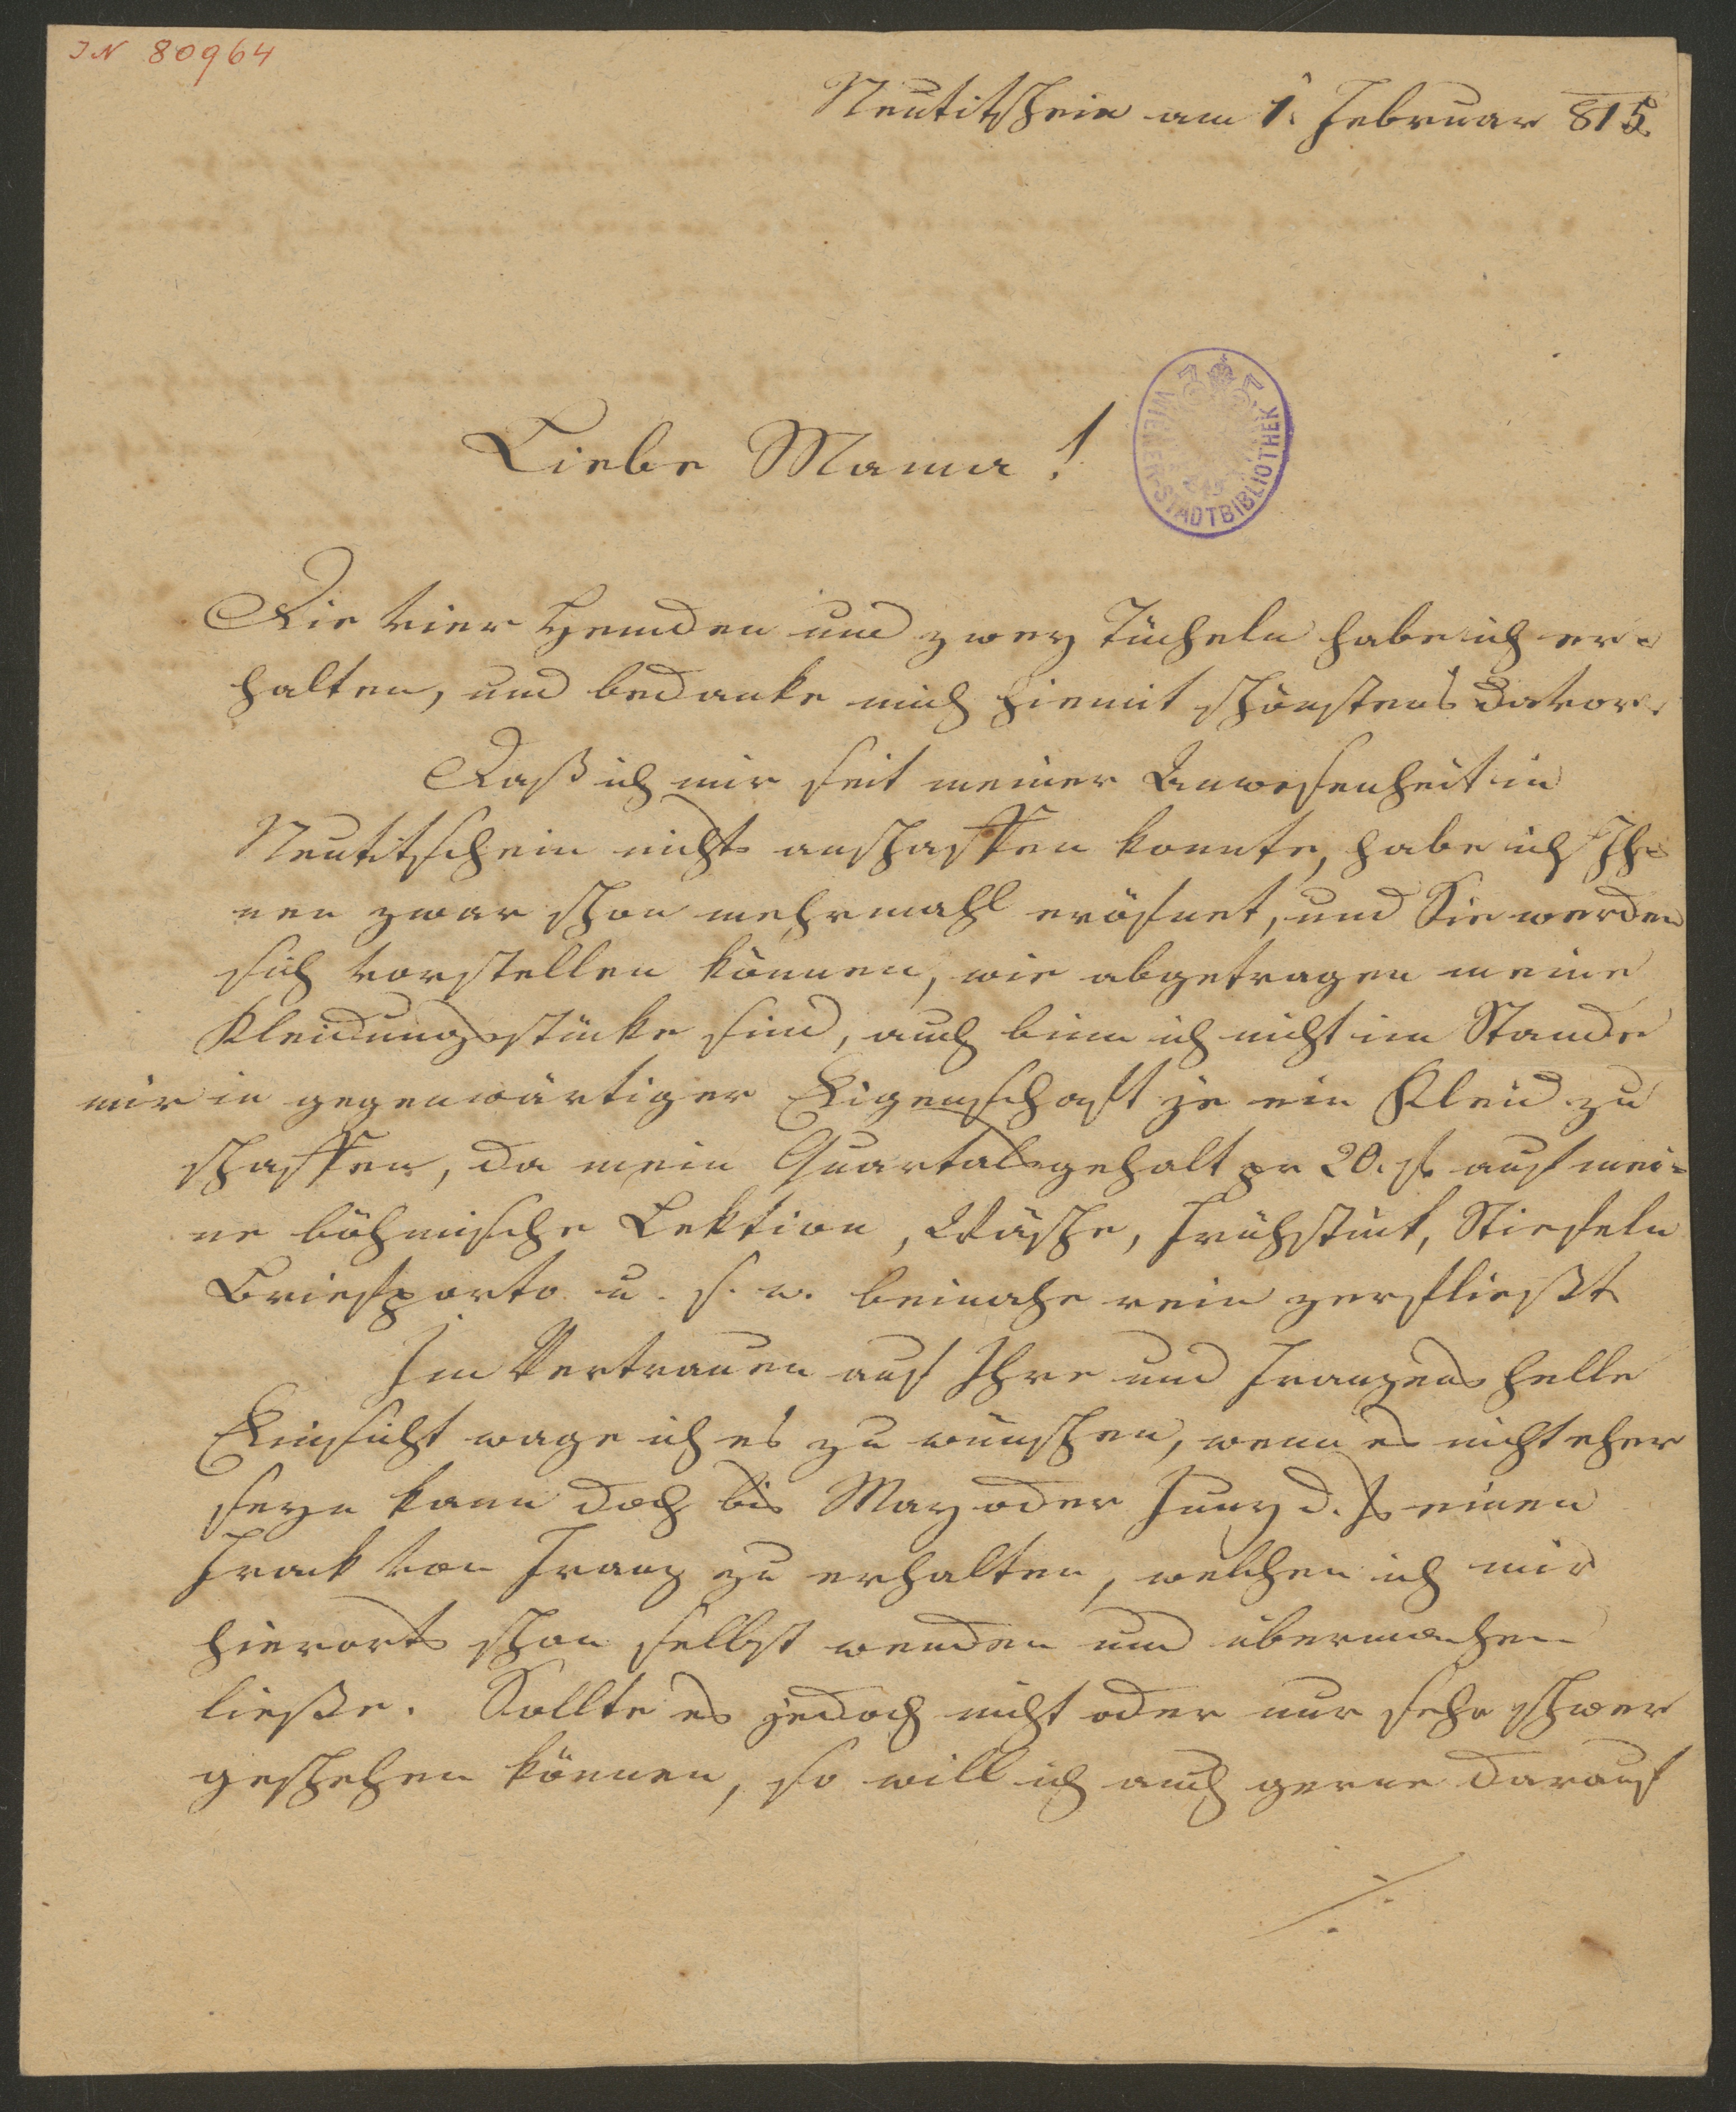 IN 80964
Neutitschein am 1. Februar 815.
Liebe Mama!
WIENER-STADTBIBLIOTHEK
Die vier Hemden und zwey Tücheln habe ich er-
halten, und bedanke mich hiemit schönstens davor.
Daß ich mir seit meiner Anwesenheit in
Neutitschein nichts anschaffen konnte, habe ich Ih-
nen zwar schon mehrmahl eröfnet, und Sie werden
sich vorstellen können, wie abgetragen meine
Kleidungsstücke sind, auch binn ich nicht im Stande
mir in gegenwärtiger Eigenschaft je ein Kleid zu
schaffen, da mein Quartalsgehalt pr 20. f. auf mei-
ne böhmische Lektion, Wäsche, Frühstück, Stiefeln
Briefporto u. s. w. beinahe rein zerfließt
Im Vertrauen auf Ihre und Franzens helle
Einsicht wage ich es zu wünschen, wenn es nicht eher
seyn kann doch bis May oder Juny d. Js einen
Frack von Franz zu erhalten, welchen ich mir
hierorts schon selbst wenden und übermachen
ließe. Sollte es jedoch nicht oder nur sehr schwer
geschehen können, so will ich auch gerne darauf
./.